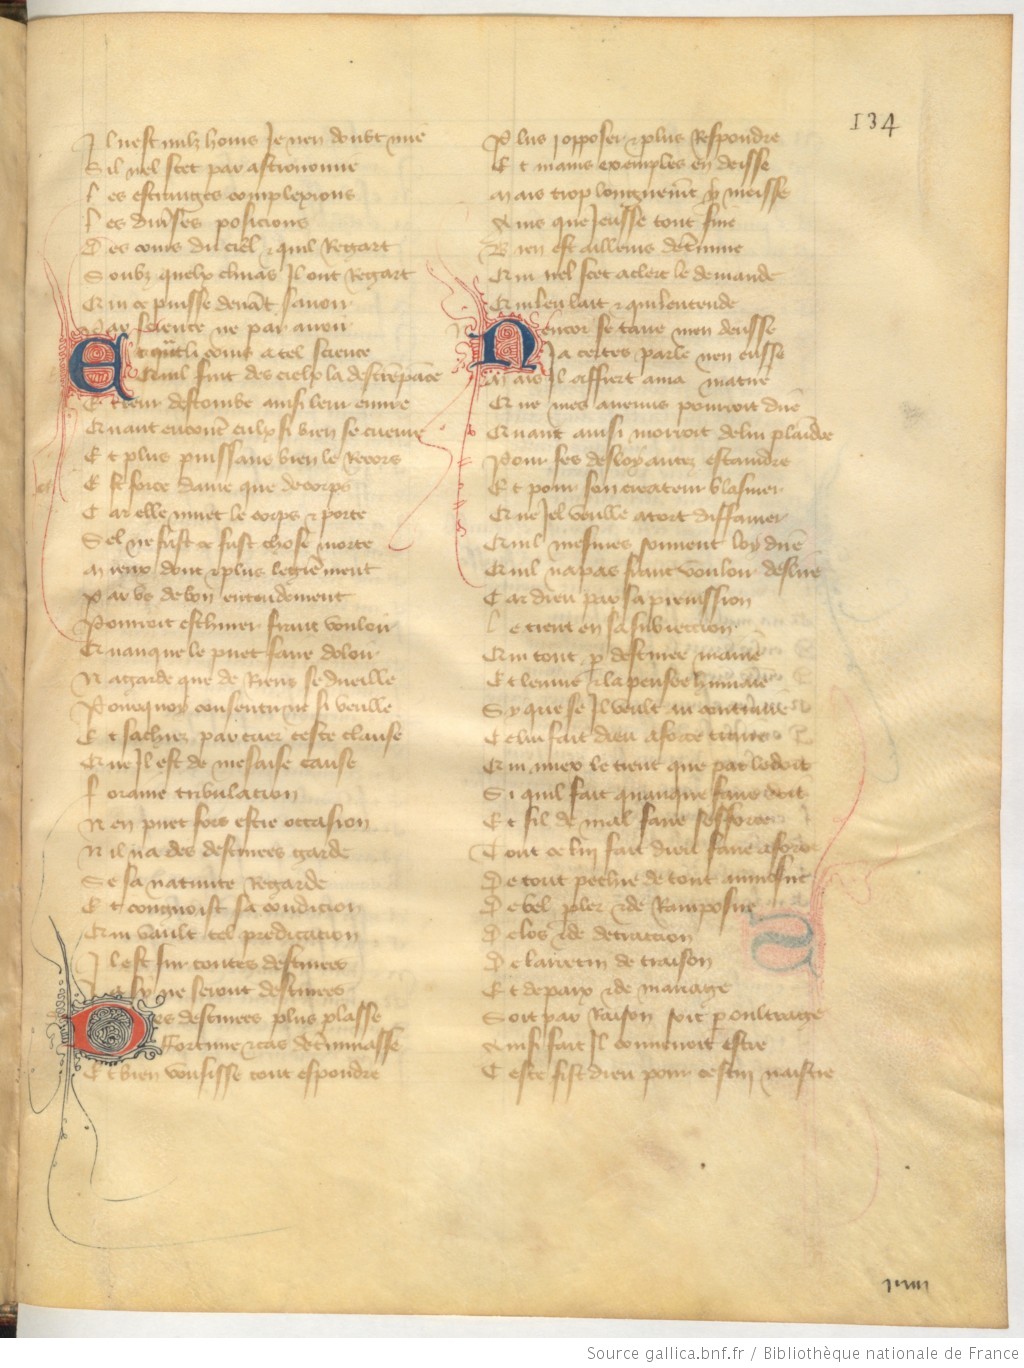 134
Il nest nulz homs Je nen doubt mie
Sil nel scet par astronomie
Les estranges complexions
Les diũses posicions
Des cours du ciel & quil Regart
Soubz quelx climas Il ont Regart
Qui ce puisse deuãt sauoir
Par science ne par auoir
Et qũt li corps a tel science
Quil fuit des cielx la destrẽpãce
Et leur destorbe ainsi leur euure
Quant encontre eulx si bien se cueure
Et plus puissans bien le Recors
Est force dame que de corps
Car elle muet le corps & porte
Sel ne fust ce fust chose morte
Mieux dont & plus legierement
Par us de bon entendement
Pourroit eschiuer franc vouloir
Quanque le puet faire doloir
Na garde que de Riens se dueille
Pourquoy consentir ne si veulle
Et sachiez par cuer ceste clause
Que Il est de mesaise cause
Foraine tribulation
Nen puet fors estre occasion
Nil na des destinees garde
Se sa natiuite Regarde
Et congnoist sa condicion
Qui vault tel predication
Il est sur toutes destinees
Ja sy ne seront destinees
Des destinees plus plasse
Fortune & cas deẽminasse
Et bien vousisse tout espondre
Plus jopposer & plus Respondre
Et mains exemples en deisse
Mais trop longuemẽt y meisse
Ains que Jeusse tout fine
Bien est ailleurs deẽmine
Qui nel scet a clerc le demande
Qui leu lait & qui lentende
Nencor se taire men deusse
Ja certes parle nen eusse
Mais Il affiert a ma matiẽ
Que mes anemis pourroit diře
Quant ainsi morroit de lui plaindre
Pour ses desloyautez estaindre
Et pour son createur blasmer
Que Jel veulle a tort diffamer
Quil mesmes souuent loy diře
Quil na pas franc vouloir deslire
Car dieu par sa preuission
Le tient en sa subiection
Qui tout p destinee maine
Et leuure & la pensee humaine
Sy que se Il veult
Ce lui fait dieu a force
Qui miex le tient que
Si quil fait quanque faire doit
Et sil de mal faire sefforce
Tout ce lui fait dieu faire a force
De tout pechie de tout
De bel pler & de Ramposne
De los & de detraction
De larrecin de traison
Et de paix & de mariage
Soit par Raison soit p oultrage
Ainsi fait Il conuenoit estre
Ceste fist dieu pour cestui naistre